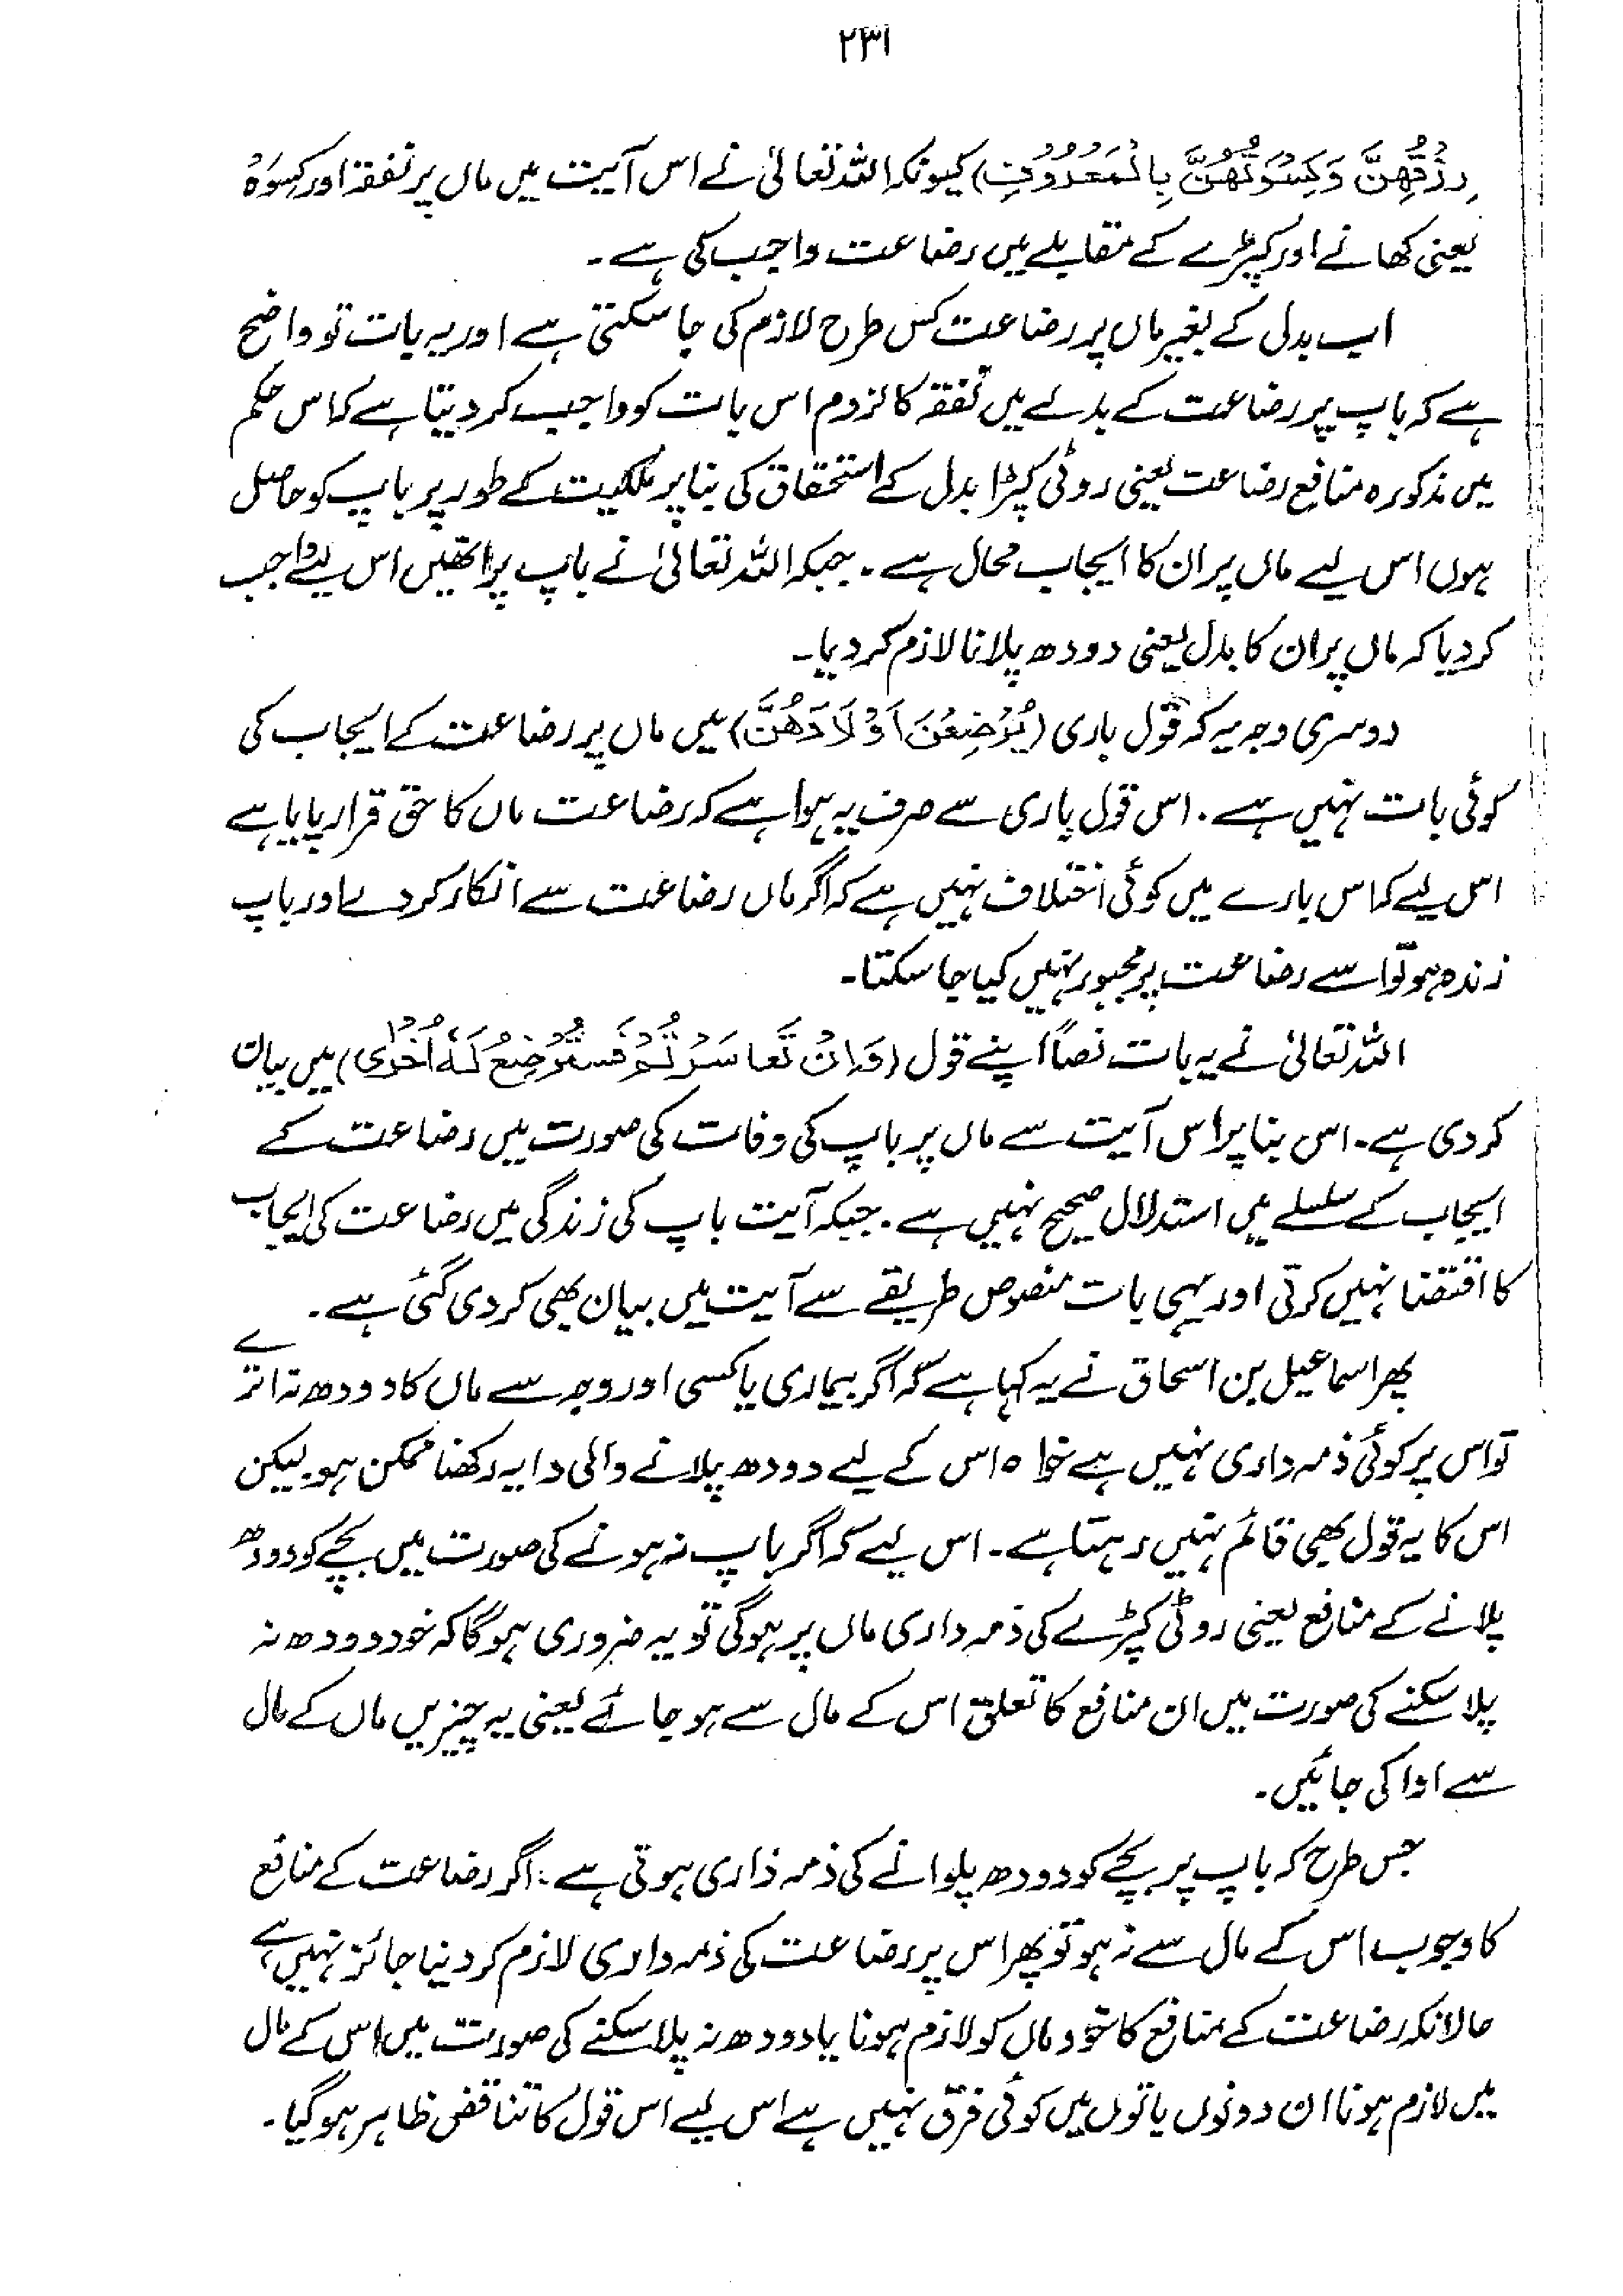 ۲۳۱
رِزْقُهُنَّ وَكِسْوَتُهُنَّ بِالْمَعْرُوْفِ) کیونکہ اللہ تعالیٰ نے اس آیت میں ماں پر نفقہ اور کِسوَۃ
یعنی کھانے اور کپڑے کے مقابلے میں رضاعت واجب کی ہے۔
اب بدل کے بغیر ماں پر رضاعت کس طرح لازم کی جا سکتی ہے اور یہ بات تو واضح
ہے کہ باپ پر رضاعت کے بدلے میں نفقہ کا لزوم اس بات کو واجب کر دیتا ہے کہ اس حکم
میں مذکورہ منافع رضاعت یعنی روٹی کپڑا بدل کے استحقاق کی بنا پر ملکیت کے طور پر باپ کو حاصل
ہوں اس لیے ماں پر ان کا ایجاب محال ہے۔ جبکہ اللہ تعالیٰ نے باپ پر انھیں اس لیے واجب
کر دیا کہ ماں پر ان کا بدل یعنی دودھ پلانا لازم کر دیا۔
دوسری وجہ یہ کہ قول باری (يُرْضِعْنَ اَوْلَادَهُنَّ) میں ماں پر رضاعت کے ایجاب کی
کوئی بات نہیں ہے۔ اس قول باری سے صرف یہ ہوا ہے کہ رضاعت ماں کا حق قرار پایا ہے
اس لیے کہ اس بارے میں کوئی اختلاف نہیں ہے کہ اگر ماں رضاعت سے انکار کر دے اور باپ
زندہ ہو تو اسے رضاعت پر مجبور نہیں کیا جا سکتا۔
اللہ تعالیٰ نے یہ بات نصاً اپنے قول (وَاِنْ تَعَاسَرْتُمْ فَسَتُرْضِعُ لَهٗ اُخْرٰى) میں بیان
کر دی ہے۔ اس بنا پر اس آیت سے ماں پر باپ کی وفات کی صورت میں رضاعت کے
ایجاب کے سلسلے میں استدلال صحیح نہیں ہے۔ جبکہ آیت باپ کی زندگی میں رضاعت کی ایجاب
کا اقتضا نہیں کرتی اور یہی بات منصوص طریقے سے آیت میں بیان بھی کر دی گئی ہے۔
پھر اسماعیل بن اسحاق نے یہ کہا ہے کہ اگر بیماری یا کسی اور وجہ سے ماں کا دودھ نہ اترے
تو اس پر کوئی ذمہ داری نہیں ہے خواہ اس کے لیے دودھ پلانے والی دایہ رکھنا ممکن ہو۔ لیکن
اس کا یہ قول بھی قائم نہیں رہتا ہے۔ اس لیے کہ اگر باپ نہ ہونے کی صورت میں بچے کو دودھ
پلانے کے منافع یعنی روٹی کپڑے کی ذمہ داری ماں پر ہوگی تو یہ ضروری ہوگا کہ خود دودھ نہ
پلا سکنے کی صورت میں ان منافع کا تعلق اس کے مال سے ہو جائے یعنی یہ چیزیں ماں کے مال
سے ادا کی جائیں۔
جس طرح کہ باپ پر بچے کو دودھ پلوانے کی ذمہ داری ہوتی ہے۔ اگر رضاعت کے منافع
کا وجوب اس کے مال سے نہ ہو تو پھر اس پر رضاعت کی ذمہ داری لازم کر دینا جائز نہیں ہے
حالانکہ رضاعت کے منافع کا خود ماں کو لازم ہونا یا دودھ نہ پلا سکنے کی صورت میں اس کے مال
میں لازم ہونا ان دونوں باتوں میں کوئی فرق نہیں ہے اس لیے اس قول کا تناقض ظاہر ہو گیا۔